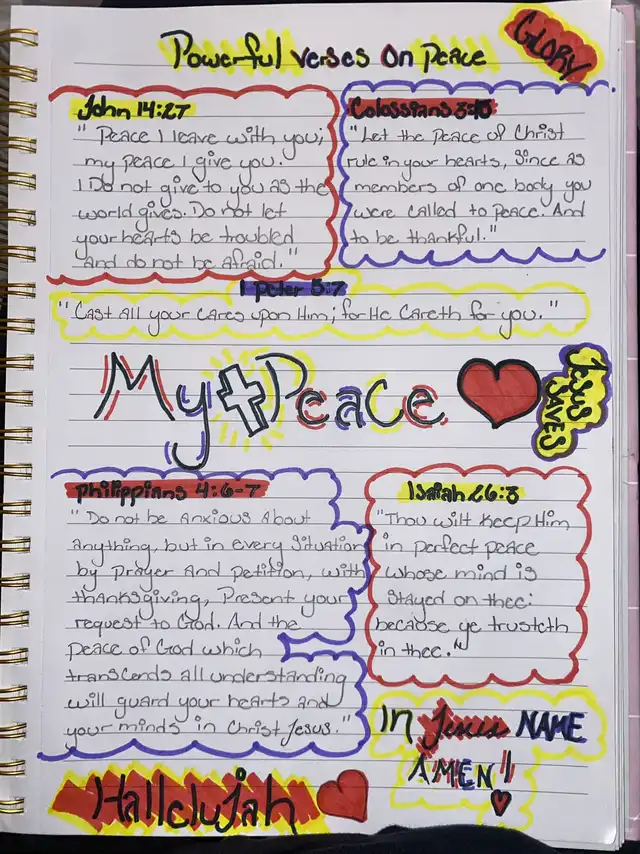 Powerful verses on Peace
GLORY
John 14:27
"Peace I leave with you;
my peace I give you.
I Do not give to you as the
world gives. Do not let
your hearts be troubled
and do not be afraid."
Colossians 3:15
"Let the peace of Christ
rule in your hearts, Since as
members of one body you
were called to peace. And
to be thankful."
1 Peter 5:7
"Cast all your cares upon Him; for He Careth for you."
My Peace
JESUS
SAVES
Philippians 4:6-7
"Do not be Anxious About
anything, but in every Situation
by Prayer And Petition, with
thanksgiving, Present your
request to God. And the
peace of God which
transcends all understanding
will guard your hearts and
your minds in Christ Jesus."
Isaiah 26:3
"Thou wilt Keep Him
in perfect peace
whose mind is
Stayed on thee:
because ye trusteth
in thee."
In Jesus NAME
AMEN!
Hallelujah